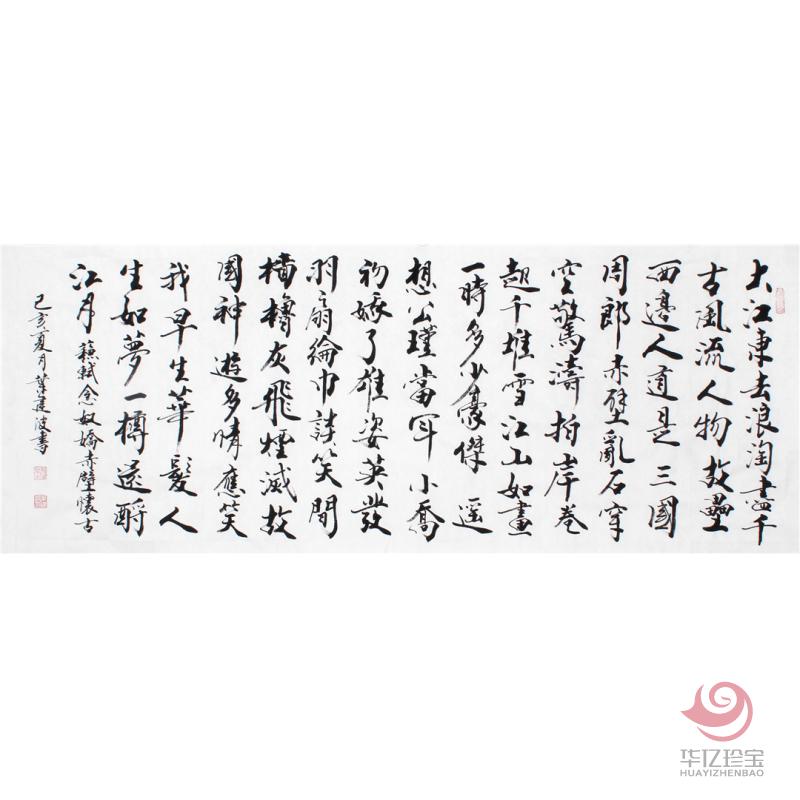 大江東去浪淘盡千
古風流人物故壘
西邊人道是三國
周郎赤壁亂石穿
空驚濤拍岸卷
起千堆雪江山如畫
一時多少豪傑遥
想公瑾當年小喬
初嫁了雄姿英發
羽扇綸巾談笑間
檣櫓灰飛煙滅故
國神遊多情應笑
我早生華髮人
生如夢一樽還酹
江月 蘇軾念奴嬌赤壁懷古
己亥夏月葉建波書
华亿珍宝
HUAYIZHENBAO